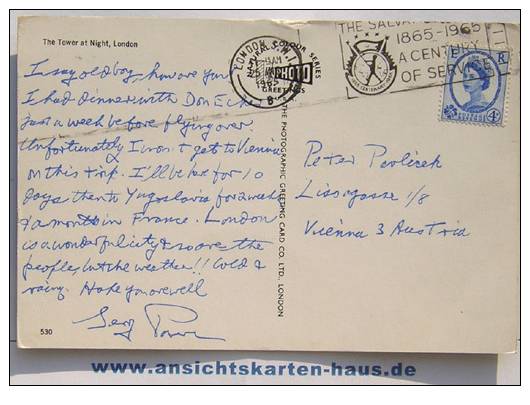 The Tower at Night, London
I say old boy, how are you
I had dinner with Don
Just a week before flying over.
Unfortunately I won't get to Vienna
on this trip. I'll be here for 10
days then to Yugoslavia for 2 weeks
& a month in France. London
is a wonderful city & so are the
people, but the weather!! Cold &
rainy. Hope you are well
530
LONDON
AM
1965
PHOTO
GREETINGS
COLOUR SERIES
THE PHOTOGRAPHIC GREETING CARD CO. LTD. LONDON
THE SALVATION
1865-1965
A CENTURY
OF SERVICE
4D
Peter
1/8
Vienna 3 Austria
www.ansichtskarten-haus.de